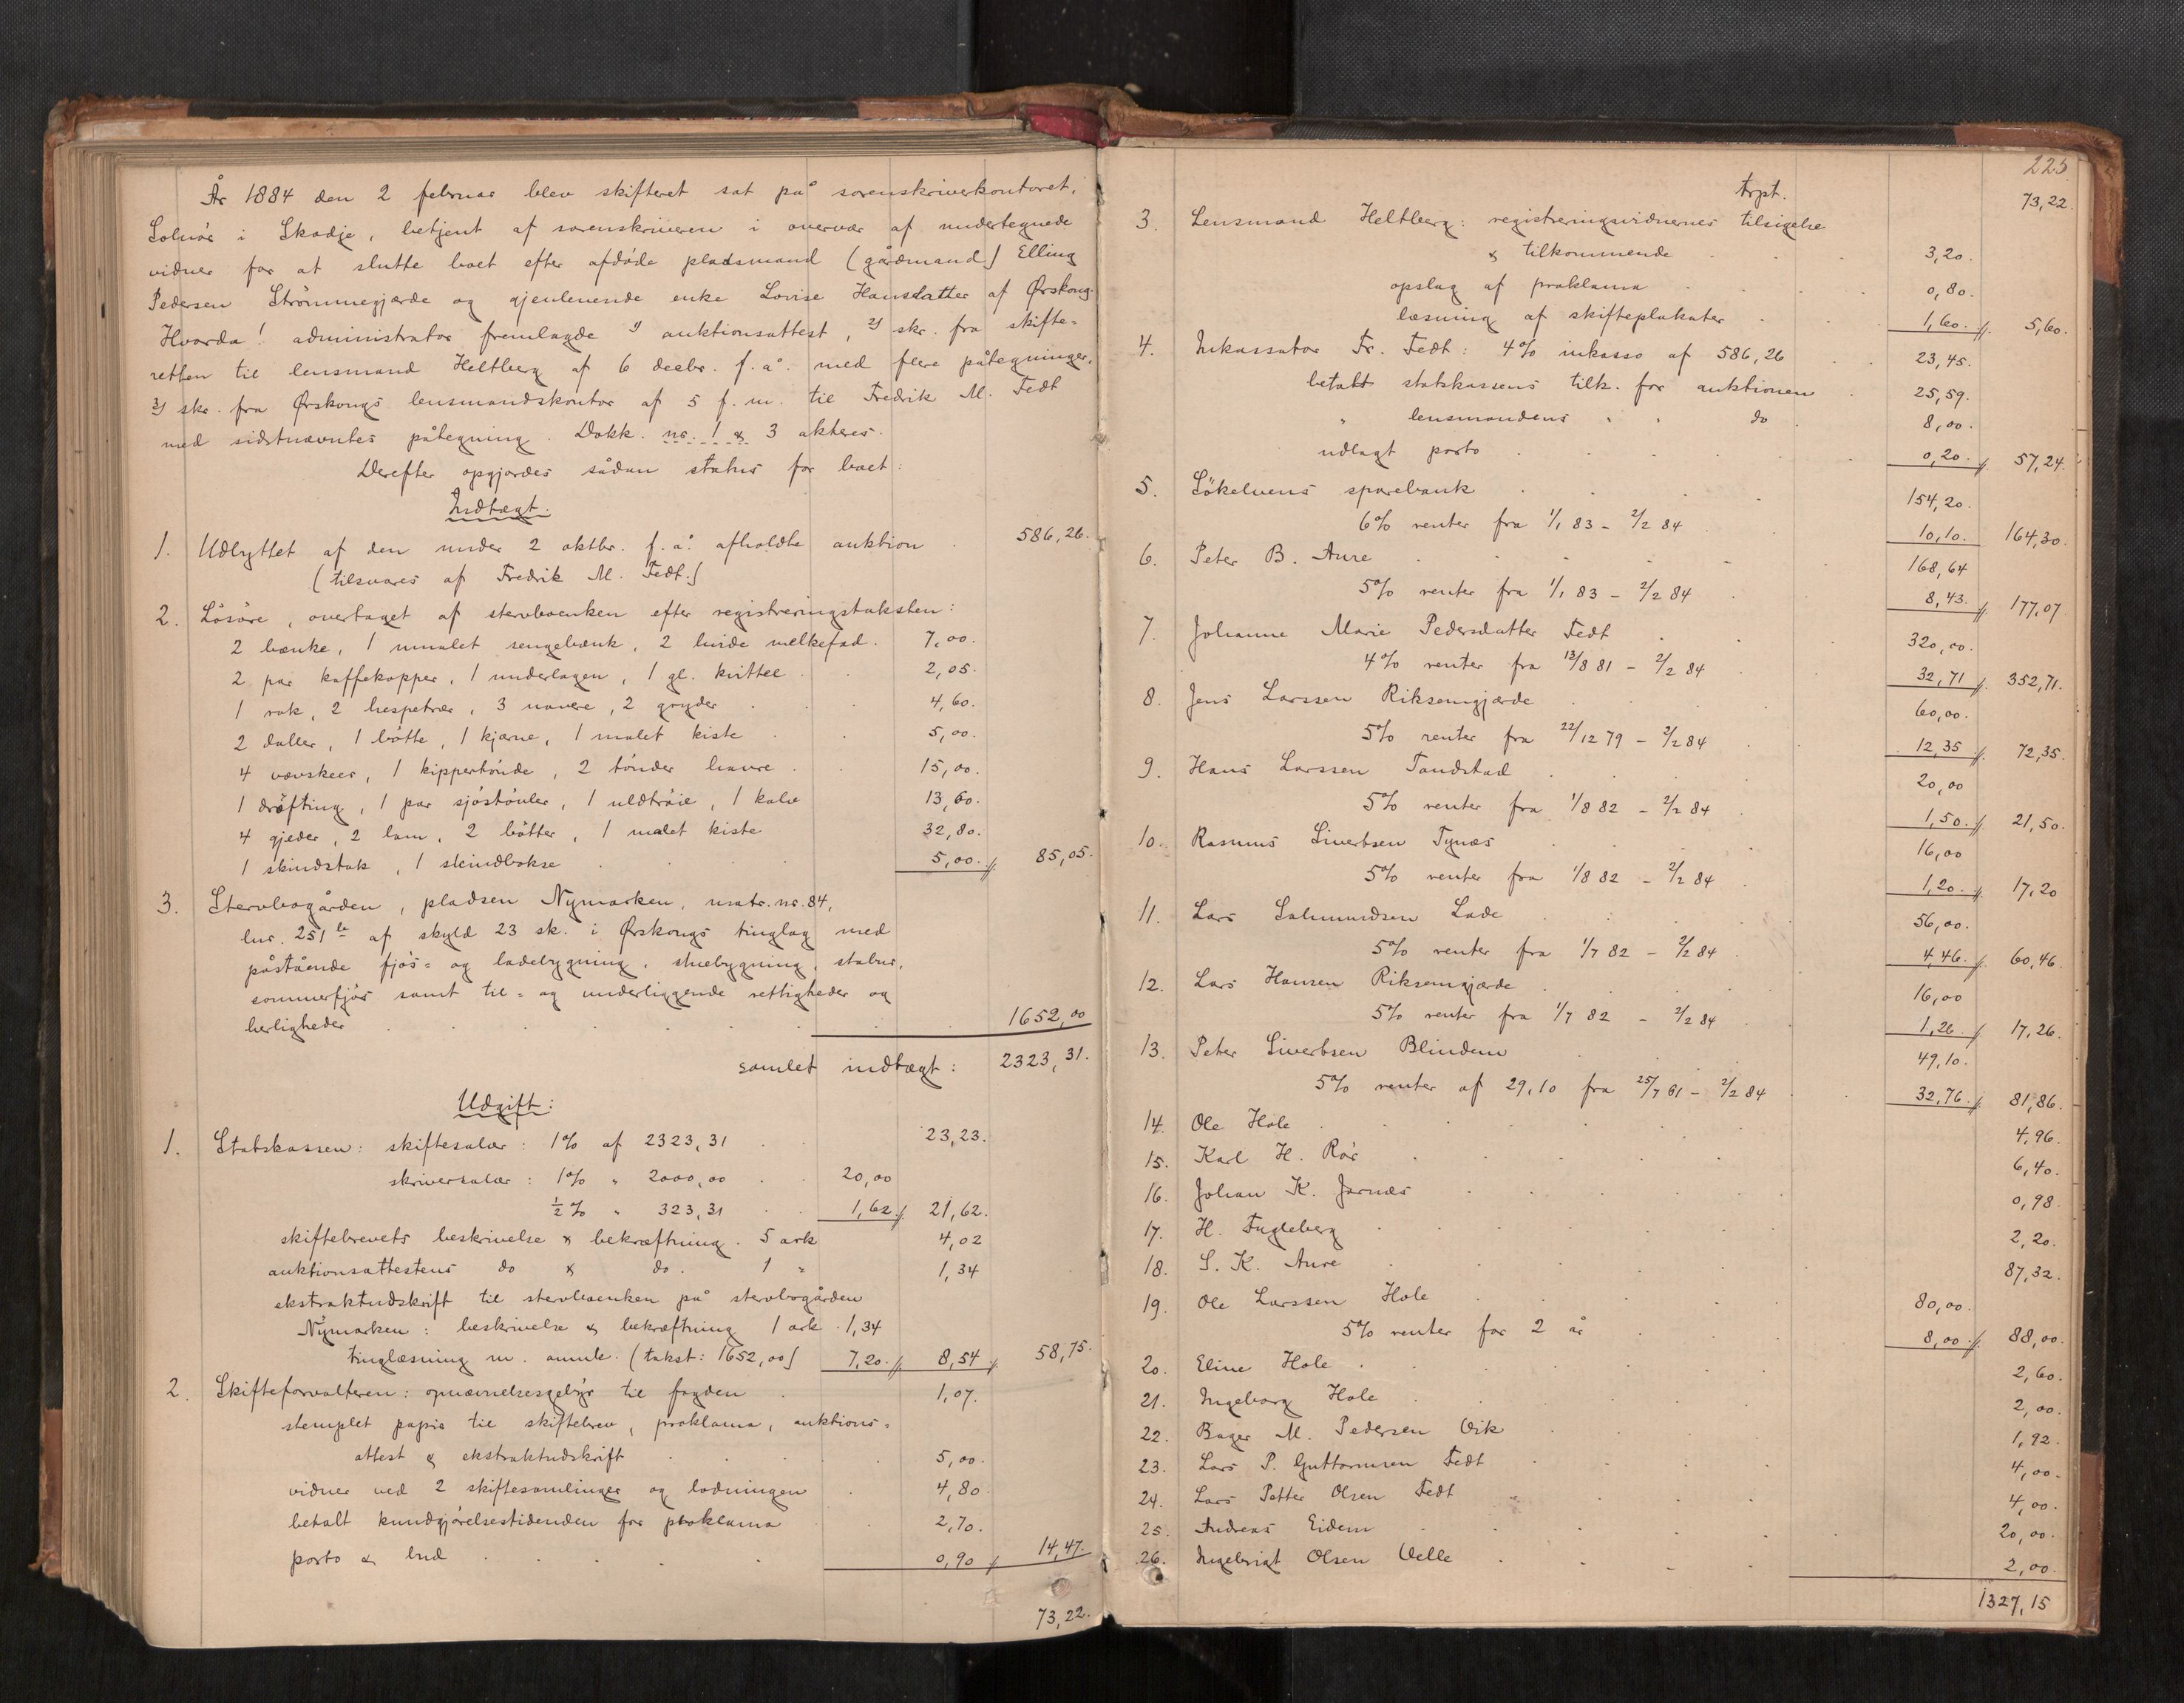 År 1884 den 2 februar blev skifteret sat på sorenskriverkontoret,
Solnør i Skodje, betjent af sorenskriveren i overvær af undertegnede
vidner for at slutte boet efter afdøde pladsmand (gårdmand) Elling
Pedersen Strømmegjærde og gjenlevende enke Lovise Hansdatter af Ørskoug.
Hvorda! administrator fremlagde 1) auktionsattest, 2) skr. fra skifte=
retten til lensmand Heltberg af 6 decbr. f. å. med flere påtegninger,
3) skr. fra Ørskougs lensmandskontor af 5 f. m. til Fredrik M. Fedt
med sidstnævntes påtegning. Dokk. nr. 1 & 3 akteres.
Derefter opgjordes sådan status for boet:
Indtægt.
1. Udbyttet af den under 2 oktbr. f. å. afholdte auktion . 586,26.
(tilsvares af Fredrik M. Fedt.)
2. Løsøre, overtaget af stervboenken efter registreringstaksten:
2 bænke, 1 umalet sengebænk, 2 hvide melkefad. 7,00.
2 par kaffekopper, 1 underlagen, 1 gl. kvittel . . 2,05.
1 rok, 2 hespetrær, 3 navere, 2 gryder . . . 4,60.
2 daller, 1 bøtte, 1 kjærne, 1 malet kiste . . 5,00.
4 vævskeer, 1 kippertønde, 2 tønder havre . . 15,00.
1 drøfting, 1 par sjøstøvler, 1 uldtrøie, 1 kalv 13,60.
4 gjeder, 2 lam, 2 bøtter, 1 malet kiste 32,80.
1 skindstak, 1 skindbokse . . . . 5,00. //. 85,05.
3. Stervbogården, pladsen Nymarken, matr. nr. 84,
lnr. 251 b af skyld 23 sk. i Ørskougs tinglag med
påstående fjøs= og ladebygning, stuebygning, stabur,
sommerfjøs samt til= og underliggende rettigheder og
herligheder . . . . . . . 1652,00
samlet indtægt: 2323,31.
Udgift:
1. Statskassen: skiftesalær: 1% af 2323,31 . . 23,23.
skriversalær: 1% " 2000,00 . . 20,00
½% " 323,31 . . 1,62 //. 21,62.
skiftebrevets beskrivelse & bekræftning. 5 ark 4,02
auktionsattestens do & do. 1 " 1,34
ekstraktudskrift til stervboenken på stervbogården
Nymarken: beskrivelse & bekræftning 1 ark . 1,34
tinglæsning m. anmk. (takst: 1652,00) 7,20. //. 8,54 //. 58,75.
2. Skifteforvalteren: opnævnelsesgebyr til fogden . 1,07.
stemplet papir til skiftebrev, proklama, auktions=
attest & ekstraktudskrift . . . . 5,00.
vidner ved 2 skiftesamlinger og lodningen . 4,80.
betalt kundgjørelsestidenden for proklama . 2,70.
porto & bud . . . . 0,90 //. 14,47.
73,22.
223
trpt. 73,22.
3. Lensmand Heltberg: registreringsvidnernes tilsigelse
& tilkommende . . . 3,20.
opslag af proklama . . . . 0,80.
læsning af skifteplakater . . 1,60. //. 5,60.
4. Inkassator Fr. Fedt: 4% inkasso af 586,26 . . 23,45.
betalt statskassens tilk. for auktionen . 25,59.
" lensmandens " " do . 8,00.
udlagt porto . . . . . 0,20. //. 57,24.
5. Søkelvens sparebank . . . . 154,20.
6% renter fra 1/1 83 - 2/2 84 . 10,10. 164,30.
6. Peter B. Aure . . . . . 168,64
5% renter fra 1/1 83 - 2/2 84 . 8,43. //. 177,07
7. Johanne Marie Pedersdatter Fedt . . . 320,00.
4% renter fra 13/8 81 - 2/2 84 . 32,71 //. 352,71.
8. Jens Larssen Riksemgjærde . . . 60,00.
5% renter fra 22/12 79 - 2/2 84 . 12,35 //. 72,35.
9. Hans Larssen Tandstad . . . 20,00
5% renter fra 1/8 82 - 2/2 84 . 1,50. //. 21,50.
10. Rasmus Sivertsen Tynes . . . 16,00
5% renter fra 1/8 82 - 2/2 84 . 1,20. //. 17,20
11. Lars Salmundsen Lade . . . 56,00.
5% renter fra 1/7 82 - 2/2 84 . 4,46. //. 60,46.
12. Lars Hansen Riksemgjærde . . . 16,00
5% renter fra 1/7 82 - 2/2 84 . 1,26. //. 17,26.
13. Peter Sivertsen Blindem . . . 49,10.
5% renter af 29,10 fra 25/7 61 - 2/2 84 . 32,76. //. 81,86.
14. Ole Hole . . . . . 4,96.
15. Karl H. Rør . . . . . 6,40.
16. Johan K. Jarnes . . . . 0,98.
17. H. Fugleberg . . . . . 2,20.
18. S. K. Aure . . . . . 87,32.
19. Ole Larssen Hole . . . . 80,00.
5% renter for 2 år . . 8,00. //. 88,00.
20. Eline Hole . . . . . 2,60.
21. Ingeborg Hole . . . . 2,00.
22. Bager M. Pedersen Vik . . . 1,92.
23. Lars P. Guttormsen Fedt . . . 4,00.
24. Lars Petter Olsen Fedt . . . 4,00.
25. Andreas Eidem . . . . 20,00.
26. Ingebrigt Olsen Velle . . . 2,00.
1327,15